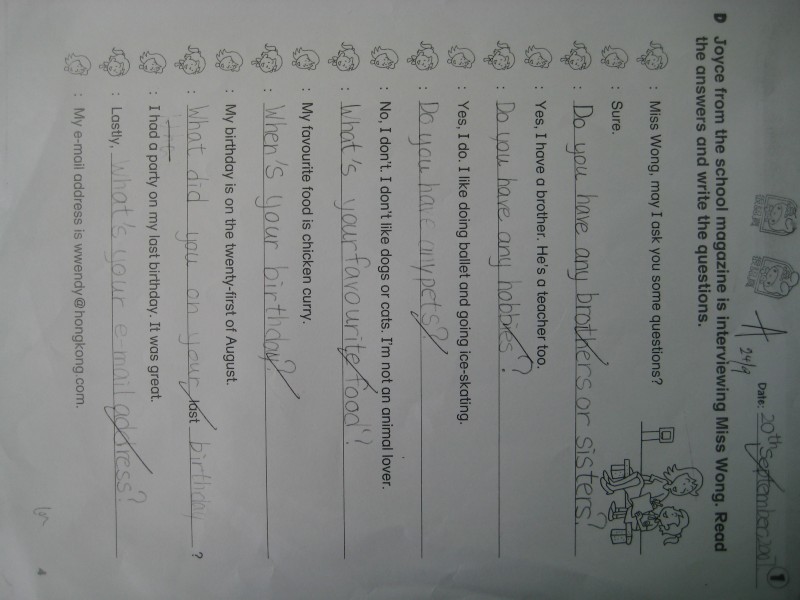 1
Date: 20th September 2007
A
24/9
D Joyce from the school magazine is interviewing Miss Wong. Read
the answers and write the questions.
: Miss Wong, may I ask you some questions?
: Sure.
: Do you have any brothers or sisters?
: Yes, I have a brother. He's a teacher too.
: Do you have any hobbies?
: Yes, I do. I like doing ballet and going ice-skating.
: Do you have any pets?
: No, I don't. I don't like dogs or cats. I'm not an animal lover.
: What's your favourite food?
: My favourite food is chicken curry.
: When's your birthday?
: My birthday is on the twenty-first of August.
: What did you on your last birthday ?
: I had a party on my last birthday. It was great.
: Lastly, What's your e-mail address?
: My e-mail address is wwendy@hongkong.com.
4